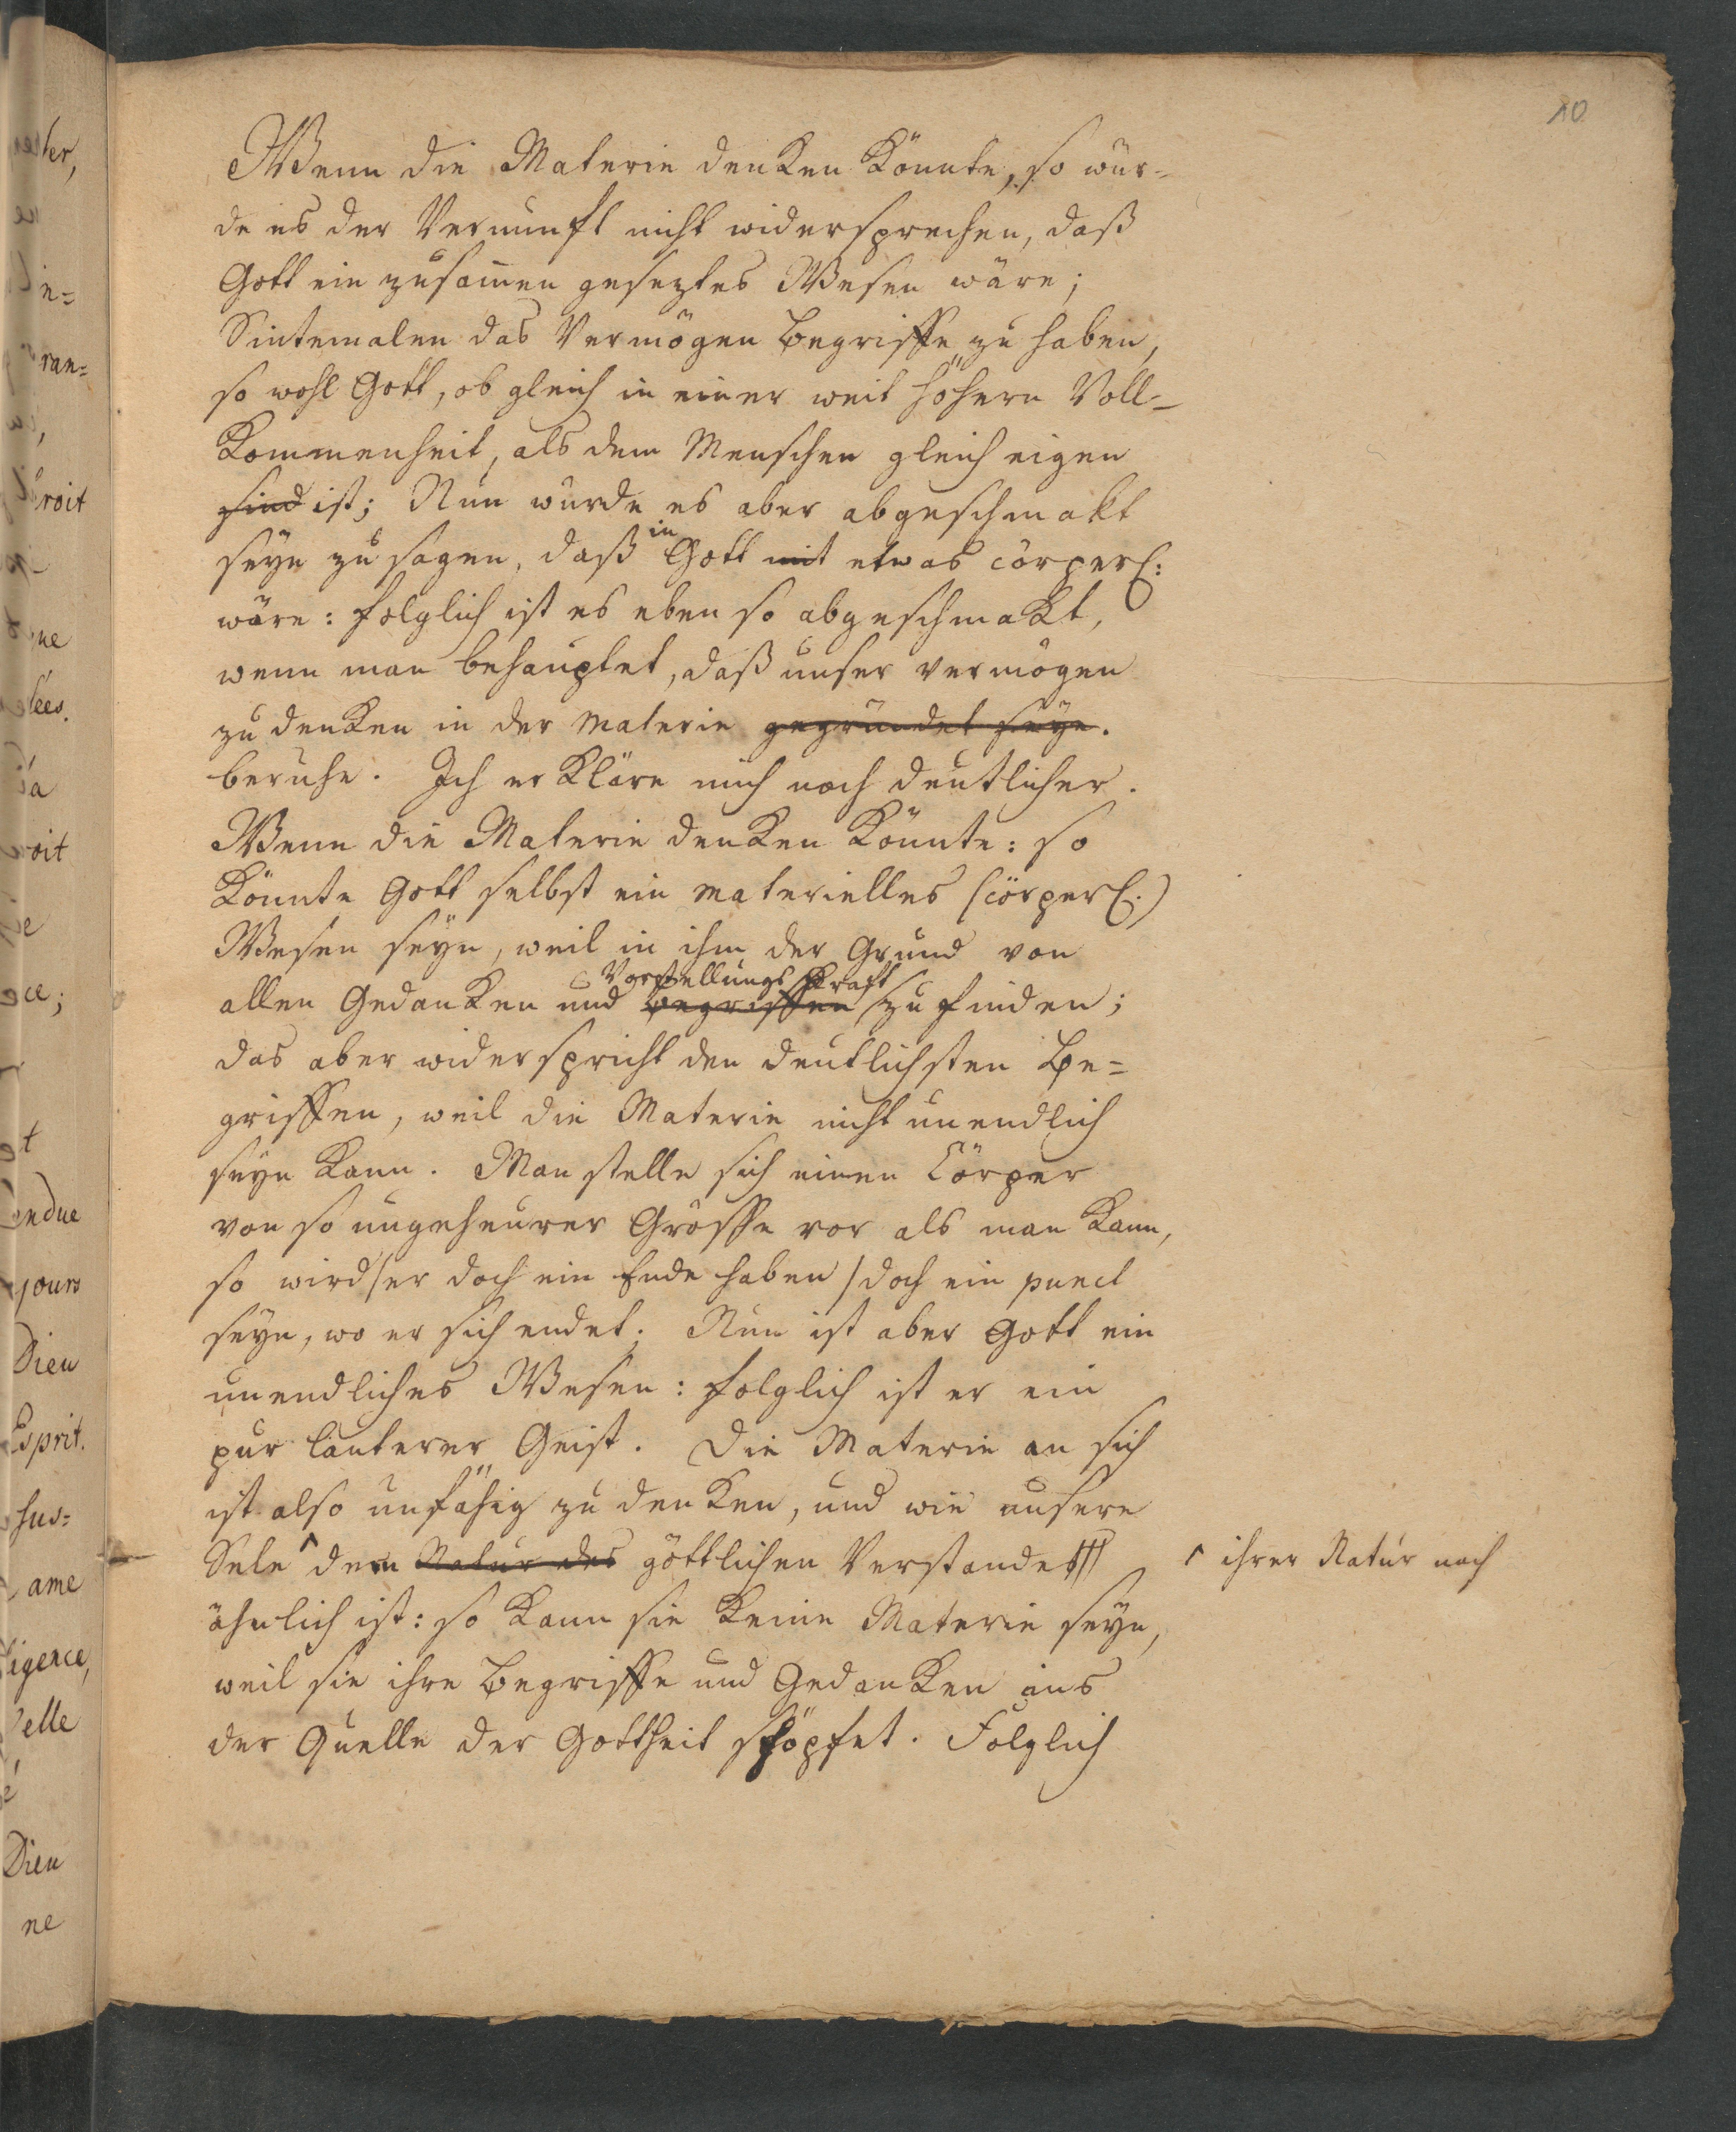 10
Wenn die Materie denken könnte, so wür-
de es der Vernunft nicht widersprechen, daß
Gott ein zusam̄en geseztes Wesen wäre;
Sintemalen das Vermögen Begriffe zu haben,
so wohl Gott, ob gleich in einer weit höhern Voll-
kommenheit, als dem Menschen gleich eigen
sind ist; Nun würde es aber abgeschmakt
seyn zu sagen, daß in Gott mit etwas cörperl:
wäre: folglich ist es eben so abgeschmakt,
wenn man behauptet, daß unser vermögen
zu denken in der Materie gegründet seye.
beruhe. Ich erkläre mich noch deutlicher.
Wenn die Materie denken könnte: so
könnte Gott selbst ein materielles (cörperl:)
Wesen seyn, weil in ihm der Grund von
Vorstellungs Kraft
allen Gedanken und begriffen zu finden;
das aber widerspricht den deutlichsten Be-
griffen, weil die Materie nicht unendlich
seyn kann. Man stelle sich einen Cörper
von so ungeheurer Grösse vor als man kann,
so wird (er doch ein Ende haben) doch ein punct
seyn, wo er sich endet; Nun ist aber Gott ein
unendliches Wesen: folglich ist er ein
pur lauterer Geist. Die Materie an sich
ist also unfähig zu denken, und wie unsere
Sele ^ dem Natur des göttlichen Verstandes
^ ihrer Natur nach
ähnlich ist: so kann sie keine Materie seyn,
weil sie ihre Begriffe und Gedanken aus
der Quelle der Gottheit schöpfet. Folglich
ter,
in=
ran=
roit
ne
lées.
oit
ce;
t
endue
jours
Dieu
Esprit.
sus=
ame
igence,
elle
Dieu
ne